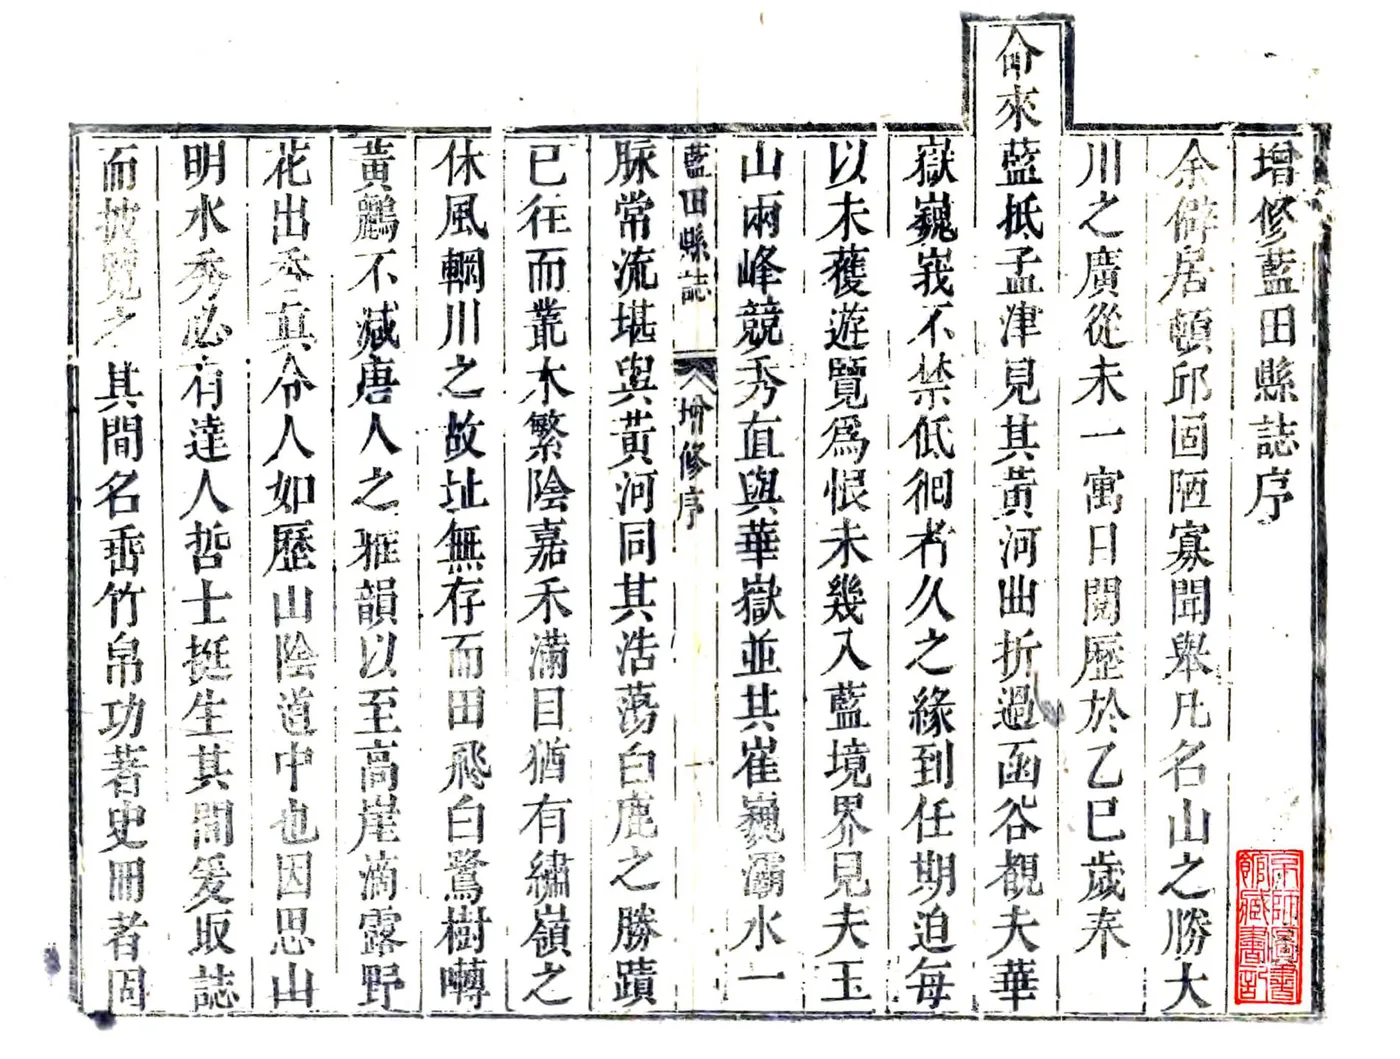 增修藍田縣誌序
余僻居頓邱固陋寡聞舉凡名山之勝大
川之廣從未一寓目閱歷於乙巳歲奉
命來藍抵孟津見其黃河曲折過函谷覩夫華
嶽巍峩不禁低徊者久之緣到任期迫每
以未獲遊覽爲恨未幾入藍境界見夫玉
山兩峰競秀直與華嶽並其崔巍灞水一
藍田縣誌
增修序
一
脉常流堪與黃河同其浩蕩白鹿之勝蹟
已往而叢木繁陰嘉禾滿目猶有繡嶺之
休風輞川之故址無存而田飛白鷺樹囀
黃鸝不減唐人之雅韻以至高崖滴露野
花出秀真令人如歷山陰道中也因思山
明水秀必有達人哲士挺生其間爰取誌
而披覽之其間名垂竹帛功著史冊者固
京師圖書
館藏書記